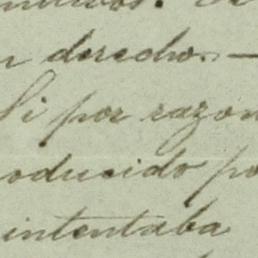 n derecho. —
Si por razon
oducido po
intentaba